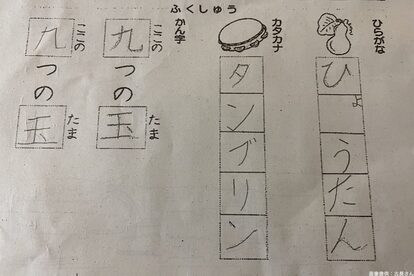 ふくしゅう
ひらがな
ひょうたん
カタカナ
タンブリン
かん字
ここの たま
九つの玉
ここの たま
九つの玉